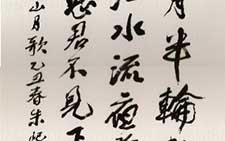 月半輪
江水流夜
思君不見下
山月歌乙丑春朱